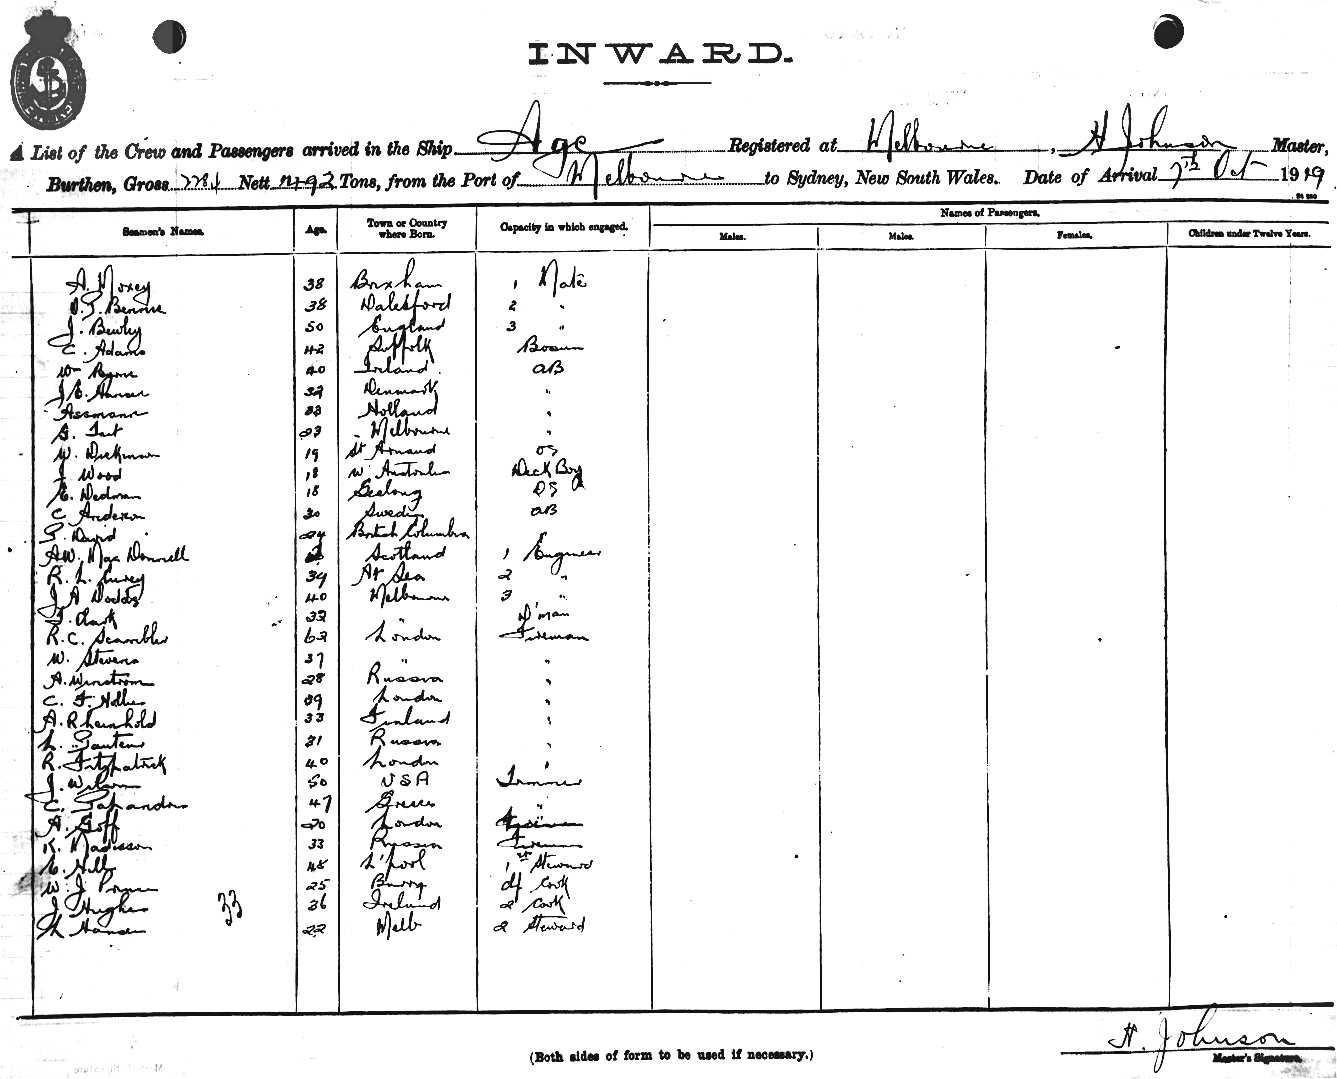 INWARD.
A List of the Crew and Passengers arrived in the Ship Age Registered at Melbourne, H Johnson Master,
Burthen, Gross Nett 1492 Tons, from the Port of Melbourne to Sydney, New South Wales. Date of Arrival 7th Oct 1919
Names of Passengers.
Seamen's Names. Age. Town or Country where Born. Capacity in which engaged. Males. Males. Females. Children under Twelve Years.
A. Moxey 38 Brixham 1 Mate
Bennie 38 Dalesford 2 "
J. Bewley 50 England 3 "
C. Adams 42 Suffolk Bosun
Wm Byrne 40 Ireland. AB
J E. Hansen 32 Denmark "
Assmann 33 Holland "
G. Tait 23 Melbourne "
W. Dickman 19 St Arnaud OS
J Wood 18 W. Australia Deck Boy
E. Dedman 18 Geelong OS
C Anderson 30 Sweden AB
David 24 British Columbia
A.W. Mac Donnell Scotland 1 Engineer
R. L. 39 At Sea 2 "
J A Dodds 40 Melbourne 3 "
J. Clark 33 " D'man
R. C. Scambler 62 London Fireman
W. Stevens 37 " "
A. Winstrom 28 Russia "
C. F. Hollis 39 London "
A. Rheinhold 33 Finland "
31 Russia "
R. Fitzpatrick 40 London "
J. Wilson 50 USA Trimmer
C. 47 Greece "
A. Goff 20 London
K. Madisson 33 Russia Fireman
E. Hill 48 L'pool 1st Steward
W. J 25 Cook
J Hughes 36 Ireland 2 Cook
Hansen 22 Melb 2 Steward
33
H. Johnson
Master's Signature.
(Both sides of form to be used if necessary.)